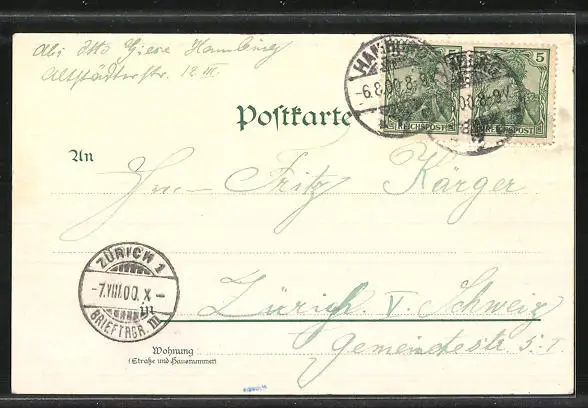 Abs. Otto Giese Hamburg
Altstädterstr. 12 III.
HAMBURG
-6.8.00.8-9V.
5
REICHSPOST
5
REICHSPOST
Postkarte
An
Hrn. Fritz Karger
ZÜRICH 1
-7.VIII.00.X-
BRIEFTRGR. III
in Zürich V. Schweiz
Gemeindestr. 5. I
Wohnung
(Straße und Hausnummer)